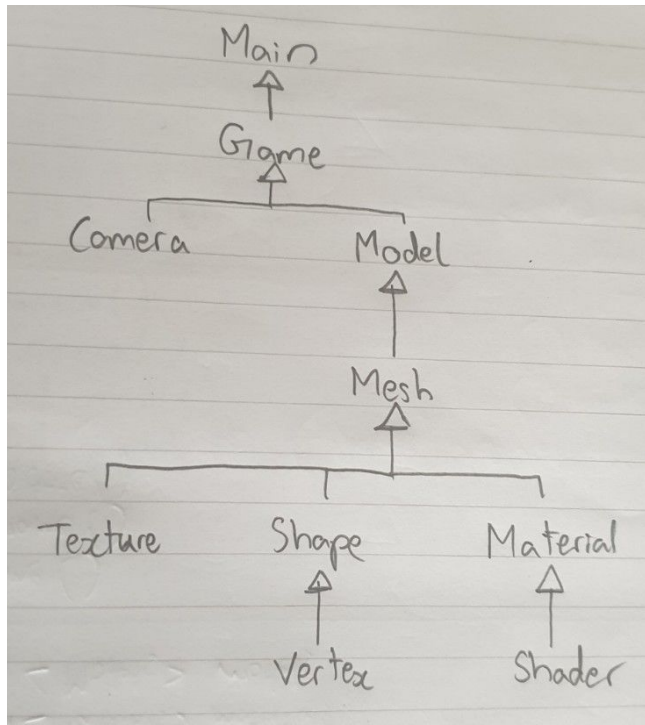 Main
Game
Camera Model
Mesh
Texture Shape Material
Vertex Shader